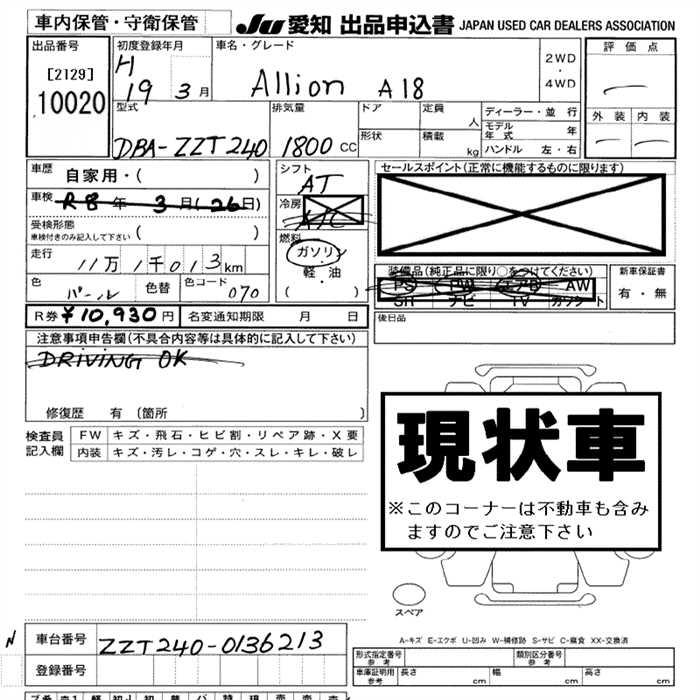 車内保管・守衛保管
JU 愛知 出品申込書 JAPAN USED CAR DEALERS ASSOCIATION
出品番号 初度登録年月 車名・グレード 評価点
[2129] H 2WD
10020 19 3月 Allion A18 4WD
型式 排気量 ドア 定員 人 ディーラー・並行 外装 内装
DBA-ZZT240 1800 CC 形状 積載 kg モデル年式 年
ハンドル 左・右
車歴 自家用・( ) シフト AT セールスポイント(正常に機能するものに限ります)
車検 R8年 3月(26日) 冷房 A/C
受検形態
車検付きのみ記入して下さい ( ) 燃料
走行 11万1千013km ガソリン
軽・油
( )
装備品(純品に限り○をつけてください) 新車保証書
色 パール 色替 色コード 070 PS PW エアB AW 有・無
SR ナビ TV カワシート
R券 ¥10,930円 名変通知期限 月 日 後日品
注意事項申告欄(不具合内容等は具体的に記入して下さい)
DRIVING OK
修復歴 有 (箇所 )
検査員 FW キズ・飛石・ヒビ割・リペア跡・X要
記入欄 内装 キズ・汚レ・コゲ・穴・スレ・キレ・破レ
現状車
※このコーナーは不動車も含み
ますのでご注意下さい
スペア
A-キズ E-エクボ U-凹み W-補修跡 S-サビ C-腐食 XX-交換済
N 車台番号 ZZT240-0136213
登録番号
形式指定番号 参考 類別区分番号 参考
車庫証明用 参考 長さ cm 幅 cm 高さ cm